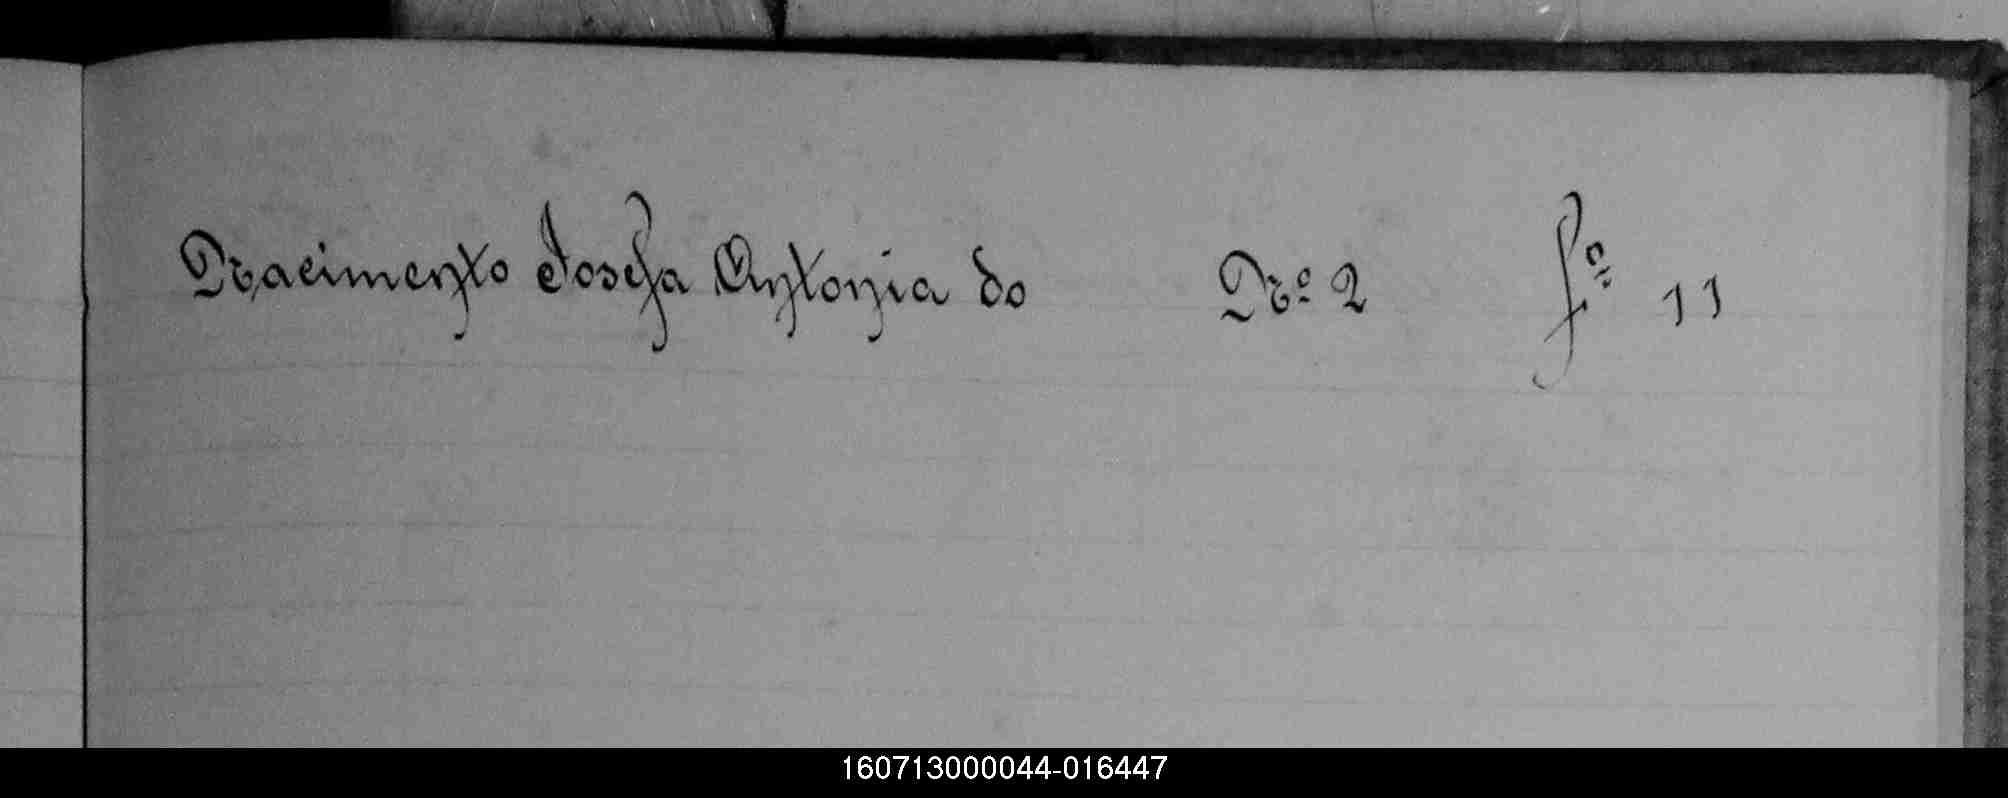 Nacimento Josefa Antonia do Nº 2 fº 11
160713000044-016447